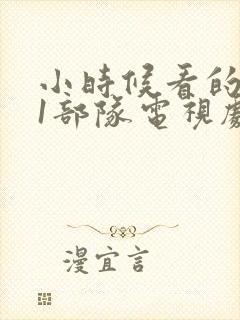 小時候看的
1部隊電視劇
漫宜言